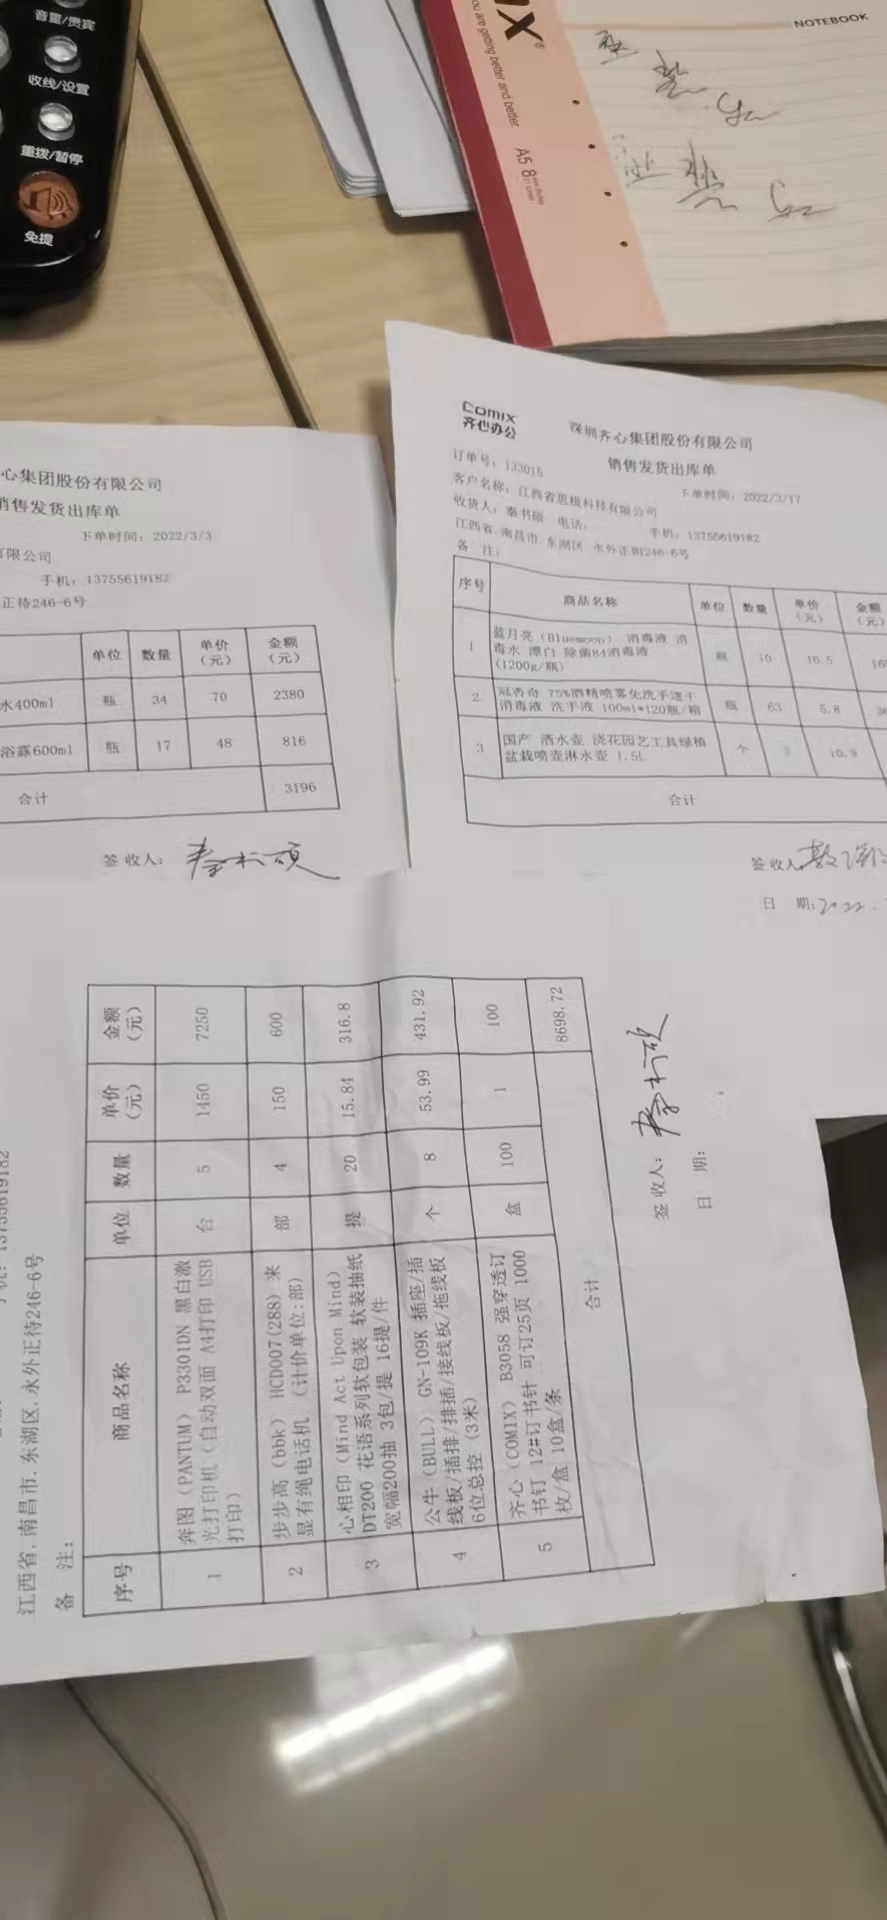 音量/贵宾
收线/设置
重拨/暂停
免提
you are getting better and better.
A5 8mm
NOTEBOOK
心集团股份有限公司
销售发货出库单
下单时间：2022/3/3
有限公司
手机：13755619182
正待246-6号
单位 数量 单价（元） 金额（元）
水400ml 瓶 34 70 2380
浴露600ml 瓶 17 48 816
合计 3196
签收人：
Comix
齐心办公
深圳齐心集团股份有限公司
销售发货出库单
订单号：133015
下单时间：2022/3/17
客户名称：江西省思极科技有限公司
收货人：秦书硕 电话：
手机：13755619182
江西省.南昌市.东湖区 永外正街246-6号
备 注：
序号 商品名称 单位 数量 单价（元） 金额（元
1 蓝月亮（Bluemoon） 消毒液 消毒水 漂白 除菌84消毒液（1200g/瓶） 瓶 10 16.5
2 冠香奇 75%酒精喷雾免洗手速干消毒液 洗手液 100ml*120瓶/箱 瓶 63 5.8
3 国产 洒水壶 浇花园艺工具绿植盆栽喷壶淋水壶 1.5L 个 10.9
合计
签收人
日 期：2022.
13755619182
江西省.南昌市.东湖区.永外正待246-6号
备 注：
序号 商品名称 单位 数量 单价（元） 金额（元）
1 奔图（PANTUM） P3301DN 黑白激光打印机（自动双面 A4打印 USB打印） 台 5 1450 7250
2 步步高（bbk） HCD007(288) 来显有绳电话机 （计价单位:部） 部 4 150 600
3 心相印（Mind Act Upon Mind） DT200 花语系列软包装 软装抽纸 宽幅200抽 3包/提 16提/件 提 20 15.84 316.8
4 公牛（BULL） GN-109K 插座/插线板/插排/排插/接线板/拖线板 6位总控（3米） 个 8 53.99 431.92
5 齐心（COMIX） B3058 强穿透订书钉 12#订书针 可订25页 1000枚/盒 10盒/条 盒 100 1 100
合计 8698.72
签收人：
日 期：